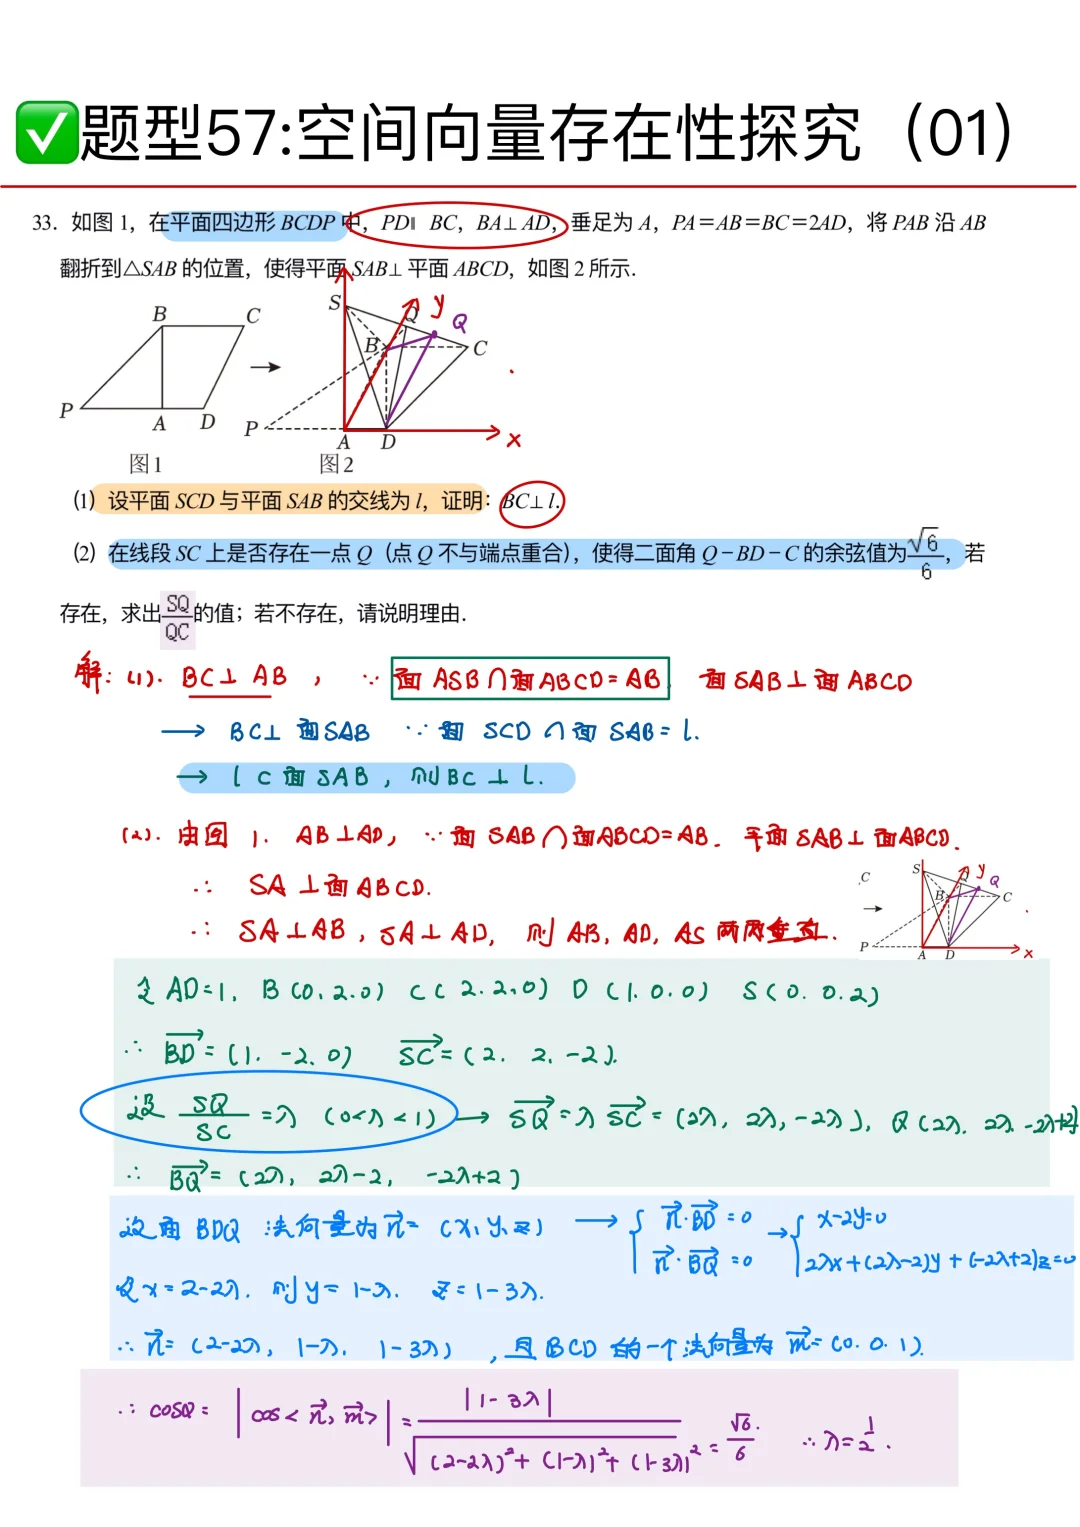 ✅题型57:空间向量存在性探究（01）
33．如图 1，在平面四边形 BCDP 中，PD∥ BC，BA⊥AD，垂足为 A，PA＝AB＝BC＝2AD，将 PAB 沿 AB
翻折到△SAB 的位置，使得平面 SAB⊥ 平面 ABCD，如图 2 所示．
B C
P A D
图1
S Q y Q
B C
P A D x
图2
(1) 设平面 SCD 与平面 SAB 的交线为 l，证明：BC⊥l.
(2) 在线段 SC 上是否存在一点 Q（点 Q 不与端点重合），使得二面角 Q－BD－C 的余弦值为√6/6，若
存在，求出SQ/QC的值；若不存在，请说明理由．
解：(1). BC⊥AB ， ∵ 面 ASB∩面ABCD=AB. 面 SAB⊥面 ABCD
→ BC⊥ 面SAB ∵ 面 SCD ∩ 面 SAB = l.
→ l ⊂ 面 SAB ，则BC ⊥ l.
(2). 由图 1. AB⊥AD， ∵ 面 SAB∩面ABCD=AB. 平面 SAB⊥ 面ABCD.
∴ SA ⊥面ABCD.
∴ SA⊥AB，SA⊥AD， 则 AB, AD, AS 两两垂直.
C
S y Q
B C
P A D x
令 AD=1, B(0.2.0) C(2.2.0) D(1.0.0) S(0.0.2)
∴ BD=(1. -2. 0) SC=(2. 2. -2).
设 SQ/SC =λ (0<λ<1) → SQ=λSC=(2λ, 2λ, -2λ), Q(2λ. 2λ. -2λ+2)
∴ BQ=(2λ, 2λ-2, -2λ+2)
设面 BDQ 法向量为n=(x, y, z) → { n·BD=0 n·BQ=0 → { x-2y=0 2λx+(2λ-2)y+(-2λ+2)z=0
令x=2-2λ. 则y=1-λ. z=1-3λ.
∴ n=(2-2λ, 1-λ, 1-3λ) ，且 BCD 的一个法向量为 m=(0.0.1).
∴ cosQ= |cos<n, m>| = |1-3λ| / √(2-2λ)²+(1-λ)²+(1-3λ)² = √6/6. ∴ λ=1/2.